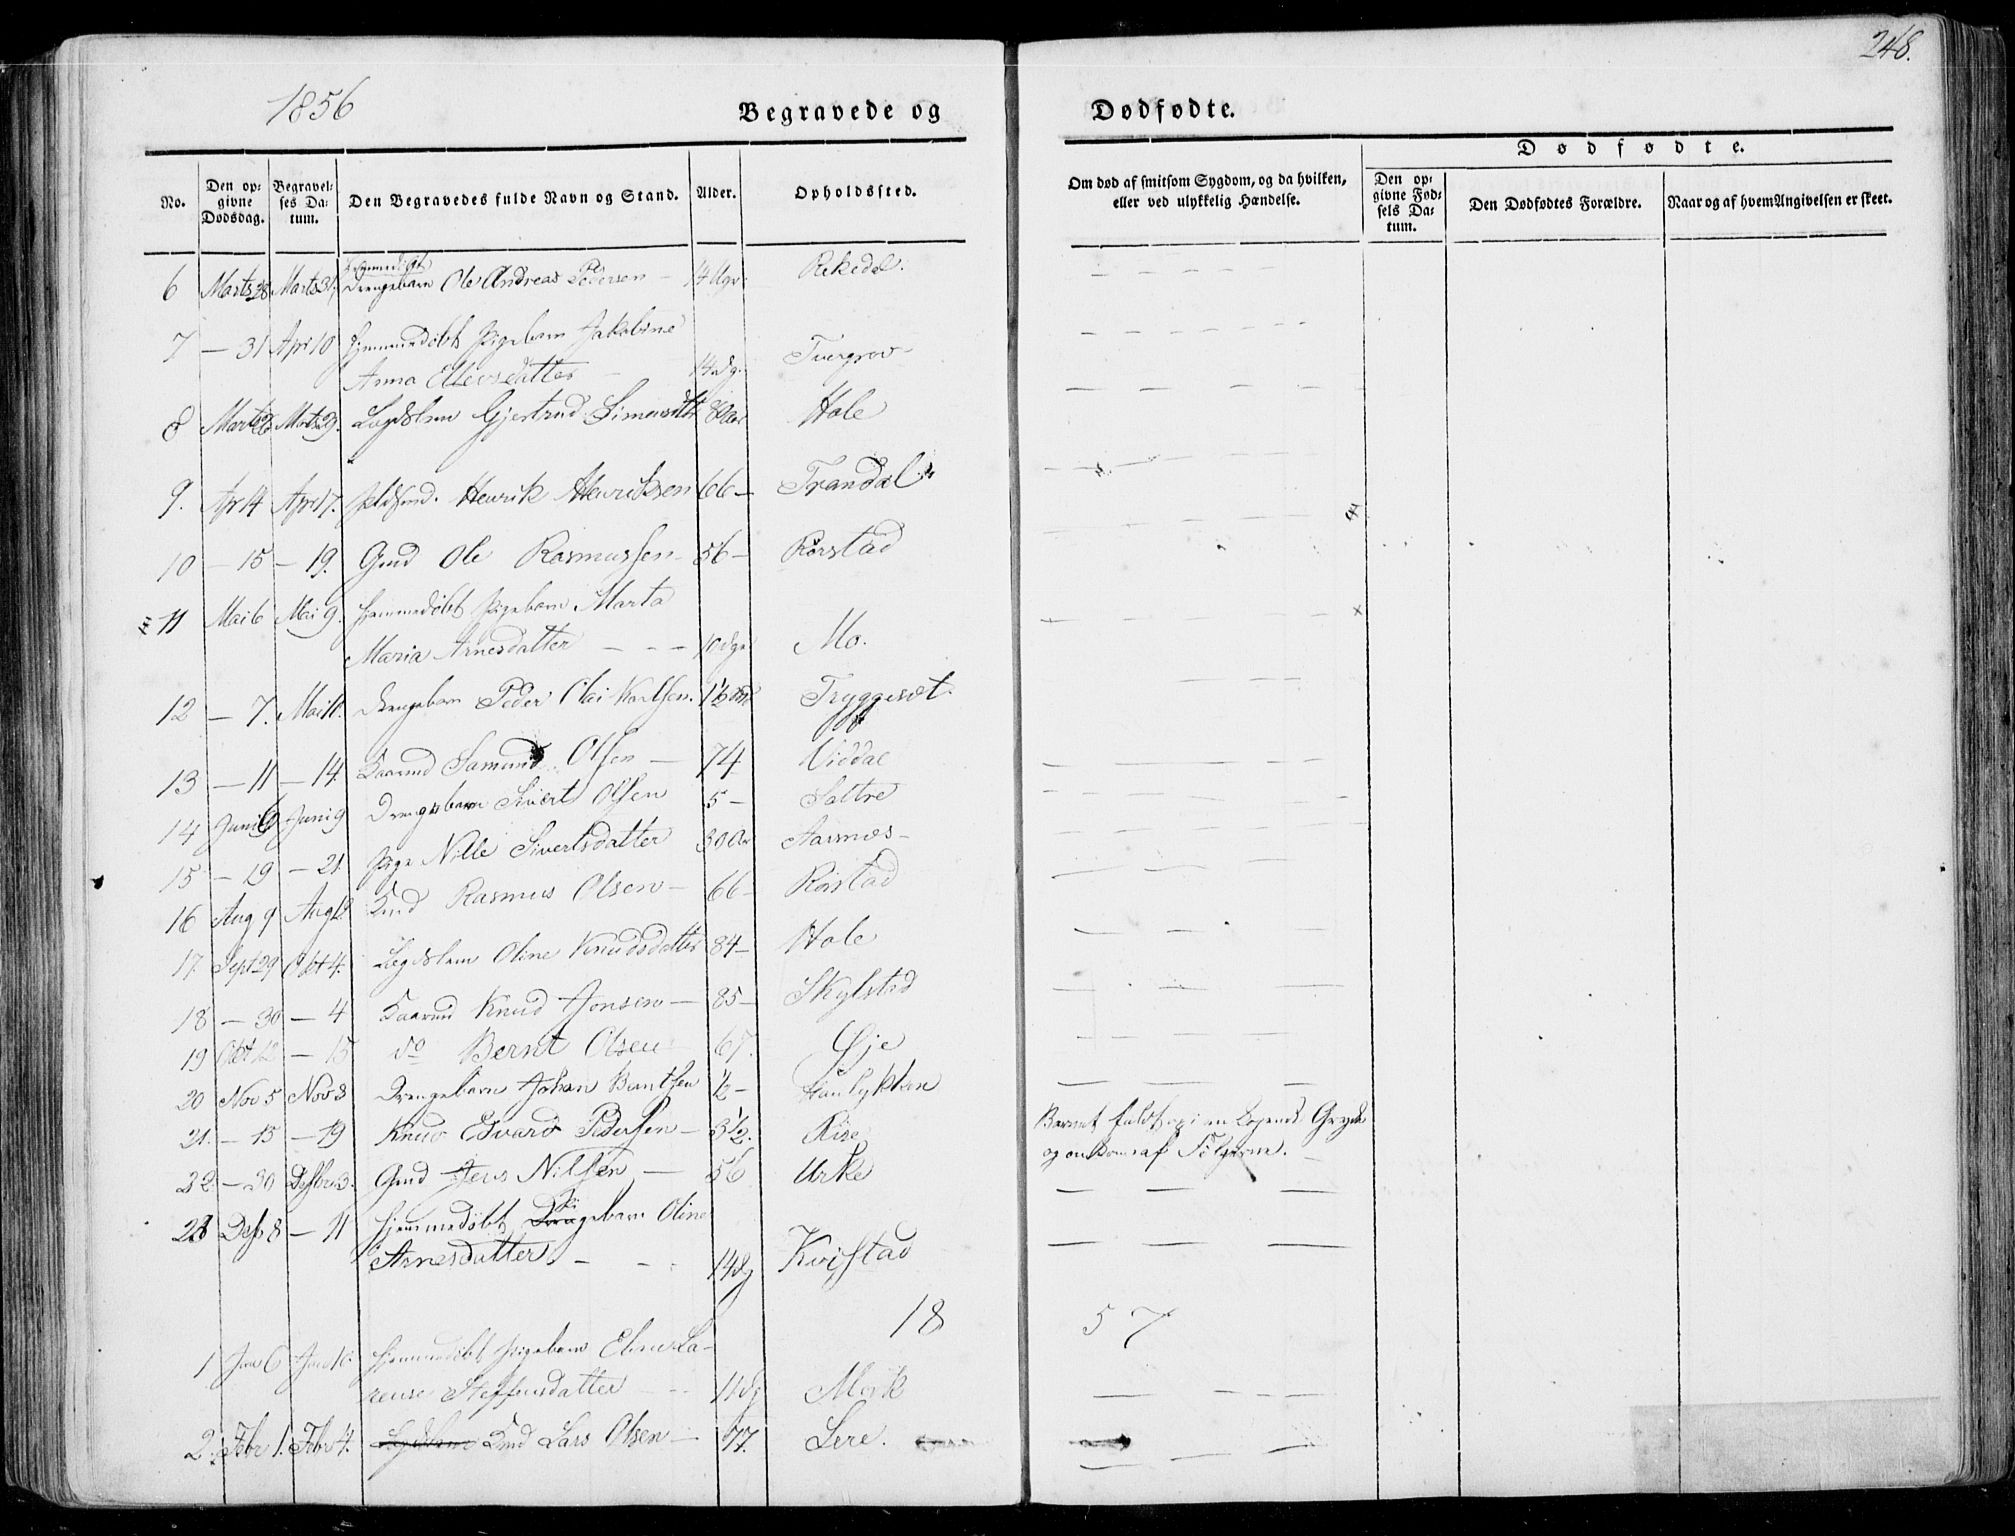 248.
1856
Begravede og Dødfødte.
Dødfødte.
No.
Den opgivne Dødsdag.
Begravelses Datum.
Den Begravedes fulde Navn og Stand.
Alder.
Opholdssted.
Om død af smitsom Sygdom, og da hvilken, eller ved ulykkelig Hændelse.
Den opgivne Fødsels Datum.
Den Dødfødtes Forældre.
Naar og af hvem Angivelsen er skeet.
hjemmedøbt
6 Marts 28 Marts 31. Drengebarn Ole Andreas Pedersen – 14 Uger Rekedal.
7 – 31 Apr 10 hjemmedøbt Pigebarn Jakobine
Anna Ellevsdatter – 14 dg. Tuergrov
8 Marts 23 Marts 29. Lægdslem Gjertrud Simonsdtr 80 Aar Hole
9. Apr 14 Apr 17. Huusmd. Henrik Henriksen 66 – Trandal
10 – 15 – 19. Gmd Ole Rasmussen – 56 – Rørstad
11 Mai 6 Mai 9. hjemmedøbt Pigebarn Marta
Maria Arnesdatter – – – 10 dge Mo.
12 – 7. Mai 11. Drengebarn Peder Olai Karlsen. 1½ Tryggeset.
13 – 11 – 14. Kaarmd Samund Olsen – 74 Viddal
14 Juni 6 Juni 9 Drengebarn Sivert Olsen 5 – Sætre
15 – 19 – 21. Pige Nille Sivertsdatter 30 Aar Aarsnæs –
16 Aug 9 Aug 12. Kmd Rasmus Olsen – 66 – Rørstad
17. Sept 29 Okt 4. Lægdslem Oline Knudsdatter 84 – Hole
18 – 30 – 4 Kaarmd Knud Jonsen – 85 – Skylstad
19 Okt 12 – 15 do Bernt Olsen 67. Øje
20 Nov 5 Nov 8 Drengebarn Johan Berntsen ½ –
21. – 15 – 19 Knud Edvard Pedersen – 3½. Rise Barnet faldt
og en Dom af Følgerne.
22. – 30 Desbr 3. Gmd Jens Nilsen – 56 Urke
23 Des 8 – 11 hjemmedøbt Pigebarn Oline
Arnesdatter. – – 14 dg Kvistad
18 57
1 Jan 6 Jan 10. hjemmedøbt Pigebarn Eline La-
rense Steffensdatter – – 11 dg Mork
2. Febr 1. Febr 4. Lægdslem Kmd Lars Olsen – 77. Lere.